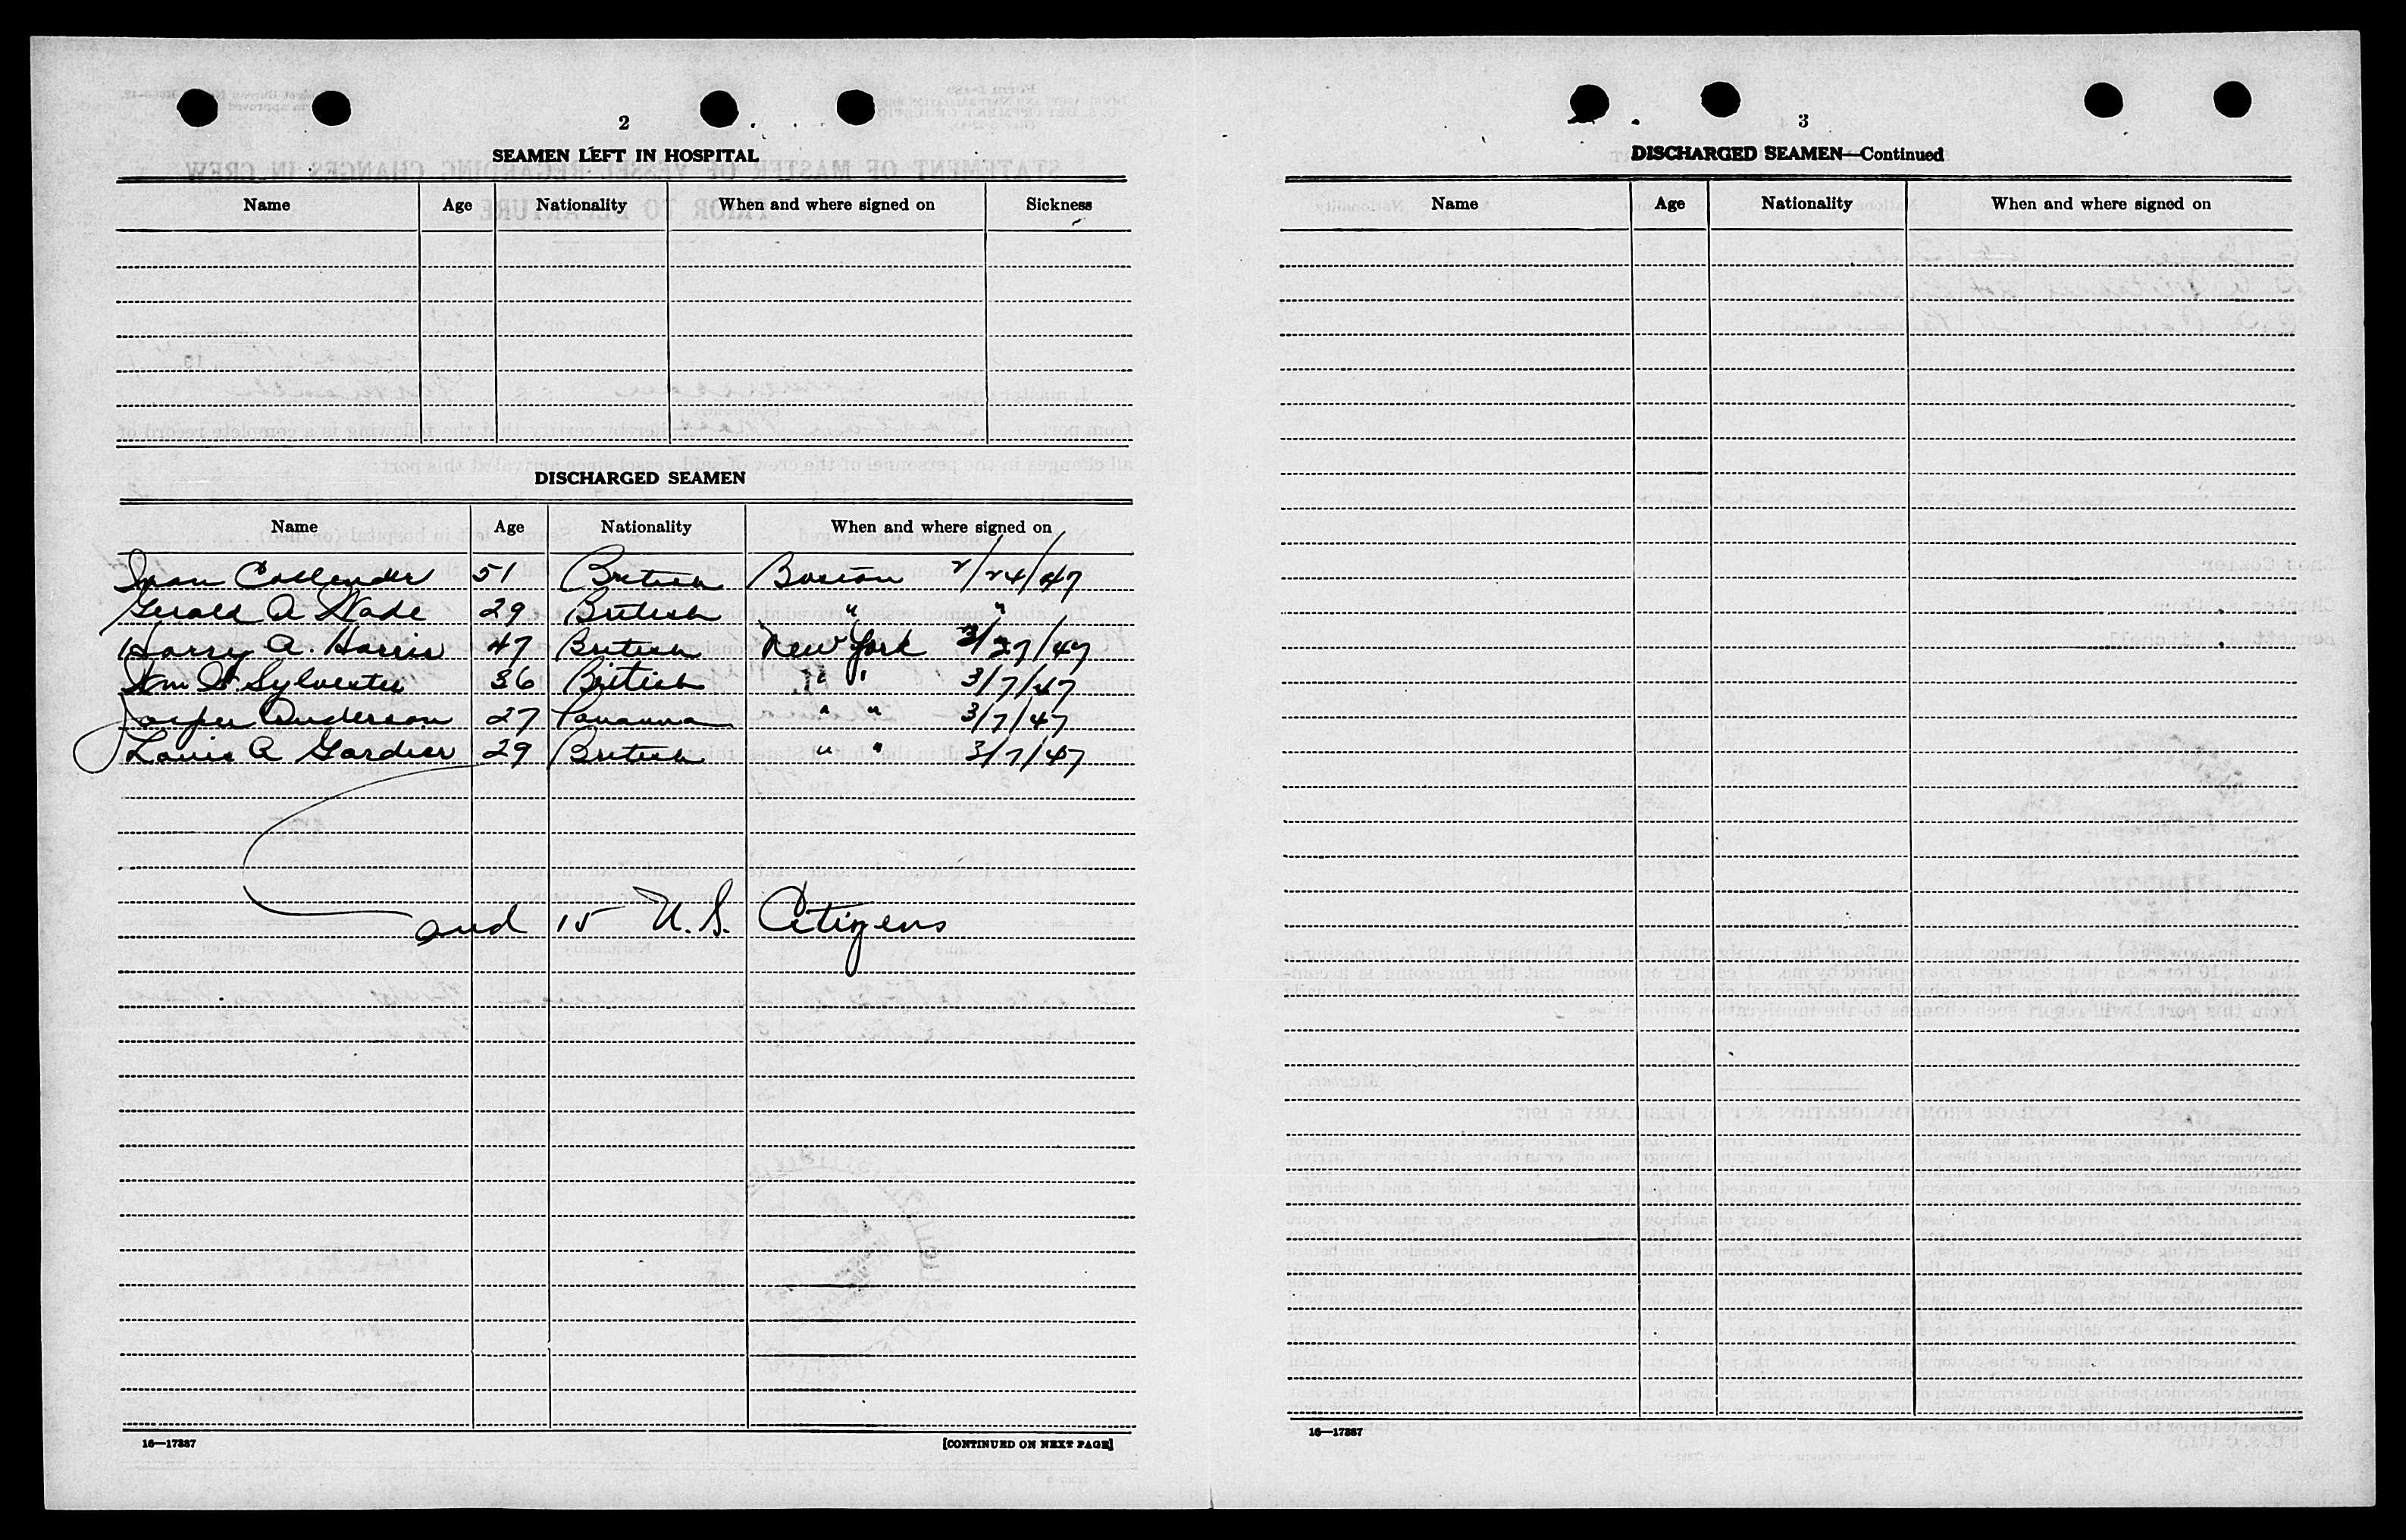 2
SEAMEN LEFT IN HOSPITAL
Name Age Nationality When and where signed on Sickness
DISCHARGED SEAMEN
Name Age Nationality When and where signed on
Ivan Callender 51 British Boston 2/24/47
Gerald A Wade 29 British " "
Harry A. Harris 47 British New York 3/27/47
Wm Sylvester 36 British " " 3/7/47
Jasper Anderson 27 Panama " " 3/7/47
Louis A Gardier 29 British " " 3/7/47
and 15 U.S. Citizens
16—17387
[CONTINUED ON NEXT PAGE]
3
DISCHARGED SEAMEN—Continued
Name Age Nationality When and where signed on
16—17387